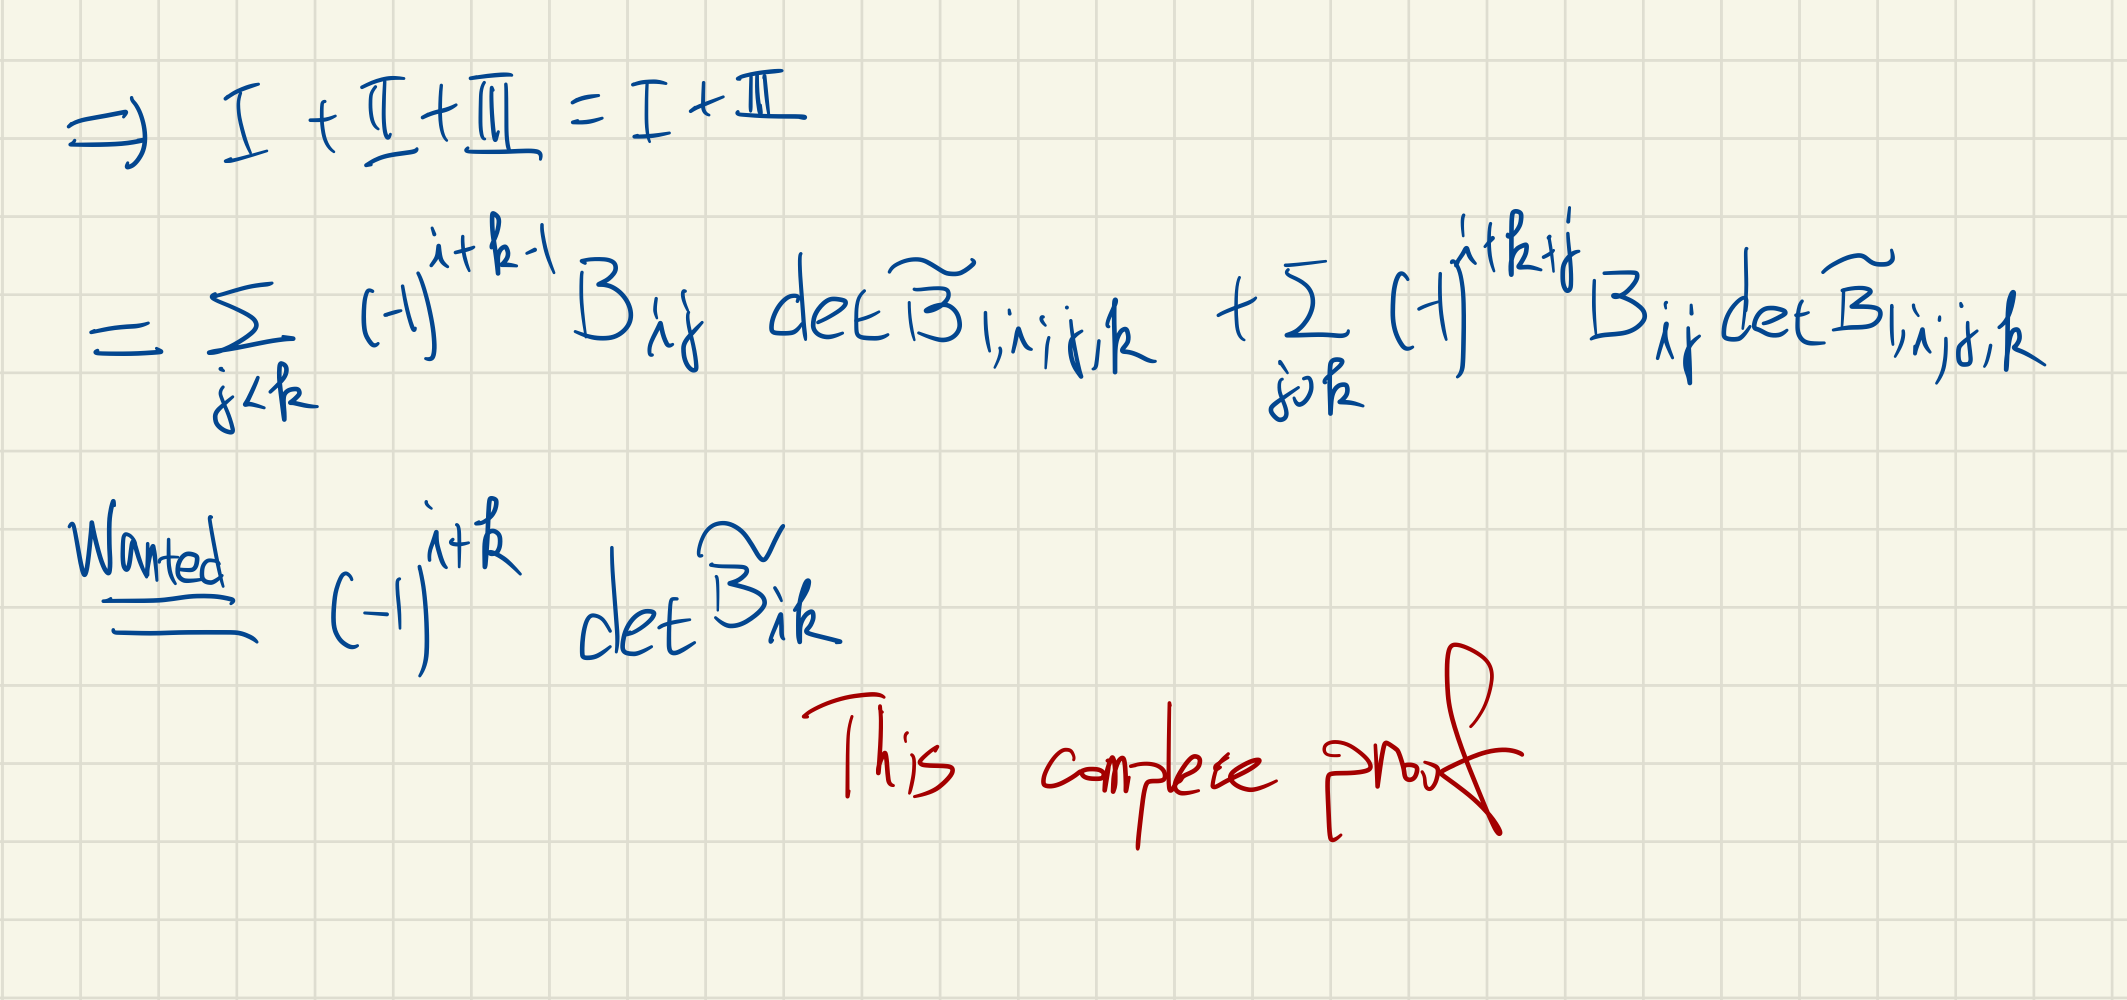 ⇒ I + II + III = I + III
= Σ_{j<k} (-1)^{i+k-1} B_{ij} det B̃_{1,i,j,k} + Σ_{j>k} (-1)^{i+k+j} B_{ij} det B̃_{1,i,j,k}
Wanted (-1)^{i+k} det B̃_{ik}
This complete proof